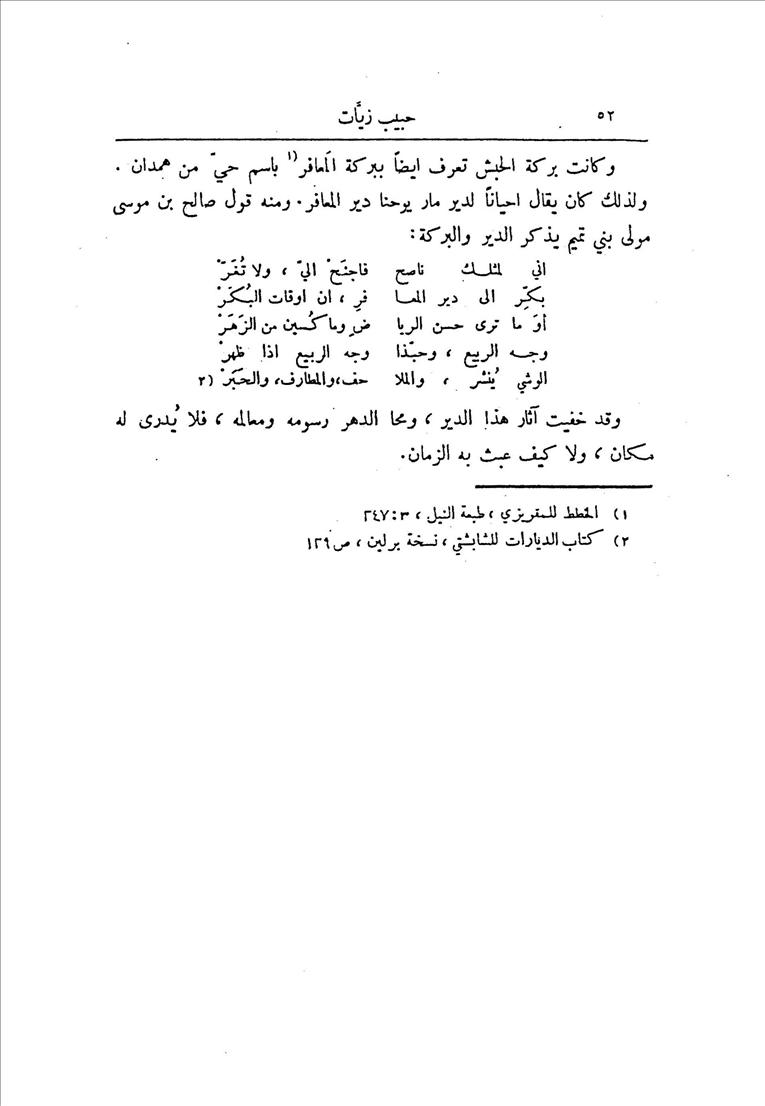 ٥٢
حبيب زيَّات
وكانت بركة الحبش تعرف ايضاً ببركة المَعافر(١ باسم حيّ من همدان .
ولذلك كان يقال احياناً لدير مار يوحنا دير المعافر. ومنه قول صالح بن موسى
مولى بني تميم يذكر الدير والبركة:
اني لمثلك ناصح فاجنَحْ اليّ ، ولا تُغَرّْ
بكِّر الى دير المعا فرِ ، ان اوقات البُكَرْ
أوَ ما ترى حسن الريا ضِ وما كُسين من الزَهَرْ
وجه الربيع ، وحبّذا وجه الربيع اذا ظهرْ
الوشي يُنشر ، والملا حف، والمطارف، والحَبَرْ (٢
وقد خفيت آثار هذا الدير ، ومحا الدهر رسومه ومعالمه ، فلا يُدرى له
مكان ، ولا كيف عبث به الزمان.
١) الخطط للمقريزي ، طبعة النيل ، ٣: ٢٤٧
٢) كتاب الديارات للشابشتي ، نسخة برلين ، ص ١٢٩